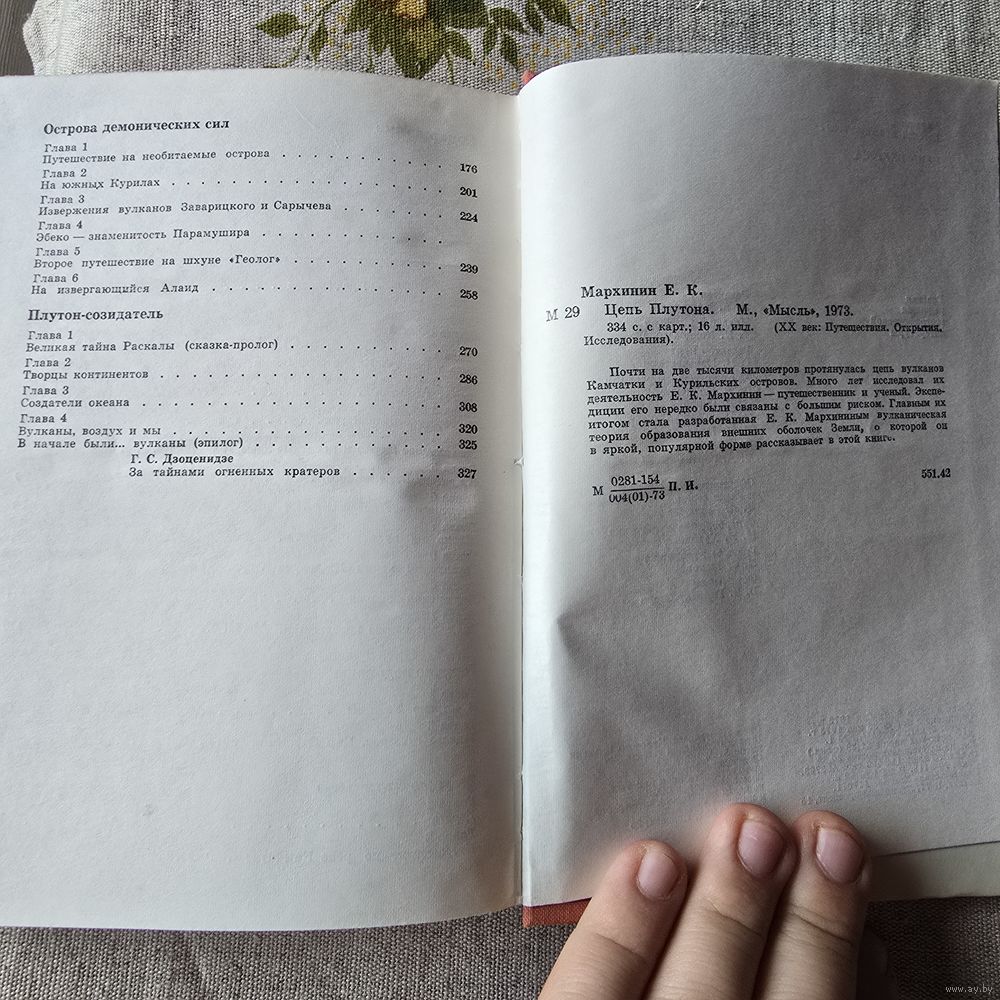 Острова демонических сил
Глава 1
Путешествие на необитаемые острова . . . . . . . . . . 176
Глава 2
На южных Курилах . . . . . . . . . . . . . . . . . 201
Глава 3
Извержения вулканов Заварицкого и Сарычева . . . . . . 224
Глава 4
Эбеко — знаменитость Парамушира . . . . . . . . . . .
Глава 5
Второе путешествие на шхуне «Геолог» . . . . . . . . . 239
Глава 6
На извергающийся Алаид . . . . . . . . . . . . . . 258
Плутон-созидатель
Глава 1
Великая тайна Раскалы (сказка-пролог) . . . . . . . . . 270
Глава 2
Творцы континентов . . . . . . . . . . . . . . . . 286
Глава 3
Создатели океана . . . . . . . . . . . . . . . . . 308
Глава 4
Вулканы, воздух и мы . . . . . . . . . . . . . . . 320
В начале были... вулканы (эпилог) . . . . . . . . . . . 325
Г. С. Дзоценидзе
За тайнами огненных кратеров . . . . . . 327
Мархинин Е. К.
М 29 Цепь Плутона. М., «Мысль», 1973.
334 с. с карт.; 16 л. илл. (XX век: Путешествия. Открытия.
Исследования).
Почти на две тысячи километров протянулась цепь вулканов
Камчатки и Курильских островов. Много лет исследовал их
деятельность Е. К. Мархинин — путешественник и ученый. Экспе-
диции его нередко были связаны с большим риском. Главным их
итогом стала разработанная Е. К. Мархининым вулканическая
теория образования внешних оболочек Земли, о которой он
в яркой, популярной форме рассказывает в этой книге.
М 0281-154 П. И. 551.42
004(01)-73
www.ay.by